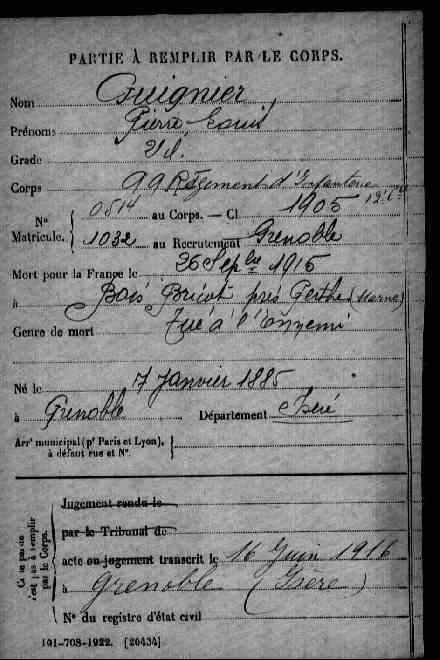 PARTIE À REMPLIR PAR LE CORPS.
Nom Guignier
Prénoms Pierre Louis
Grade 2e cl.
Corps 99 Régiment d'Infanterie
No Matricule. { 0514 au Corps. — Cl. 1905
1032 au Recrutement Grenoble
Mort pour la France le 26 Sepbre 1915
à Bois Bricot près Perthe (Marne)
Genre de mort Tué à l'Ennemi
Né le 7 Janvier 1885
à Grenoble Département Isère
Arrt municipal (pr Paris et Lyon), à défaut rue et No.
Ce cadre n'est pas à remplir par le Corps.
Jugement rendu le
par le Tribunal de
acte ou jugement transcrit le 16 Juin 1916
à Grenoble (Isère)
No du registre d'état civil
101-708-1922. [26434]